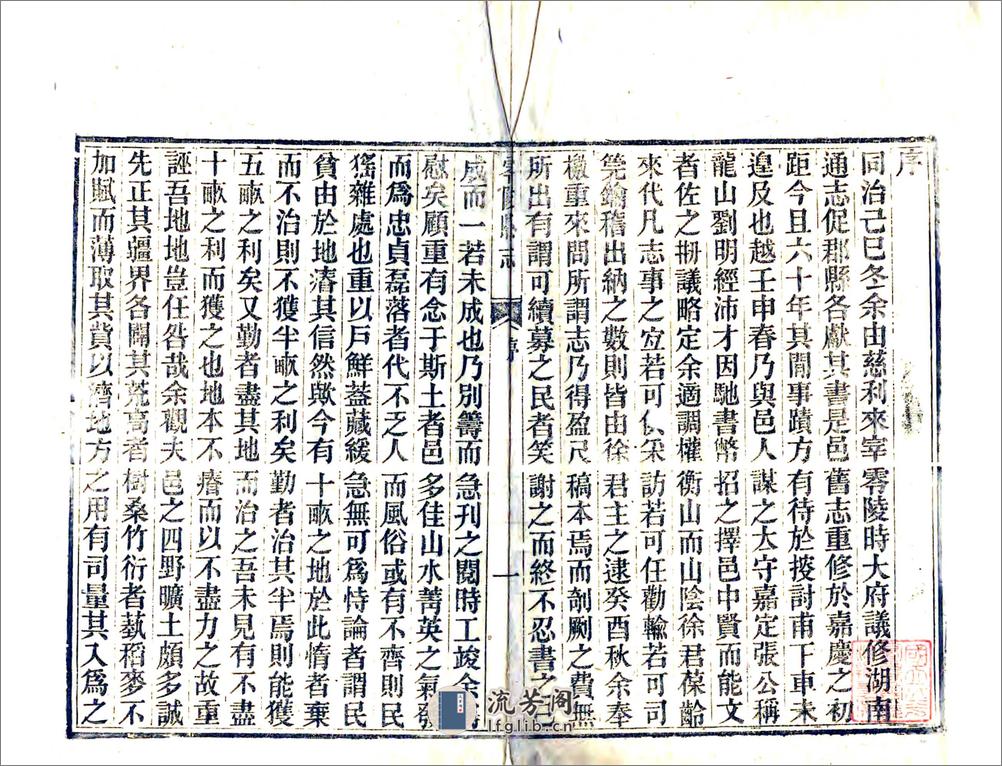 序
同治己巳冬余由慈利來宰零陵時大府議修湖南
通志促郡縣各獻其書是邑舊志重修於嘉慶之初
距今且六十年其閒事蹟方有待於搜討甫下車未
遑及也越壬申春乃與邑人謀之太守嘉定張公稱
龍山劉明經沛才因馳書幣招之擇邑中賢而能文
者佐之冊議略定余適調權衡山而山陰徐君葆齡
來代凡志事之宜若可採訪若可任勸輸若可司
筦鑰稽出納之數則皆由徐君主之逮癸酉秋余奉
檄重來問所謂志乃得盈尺稿本焉而剞劂之費無
所出有謂可續募之民者笑謝之而終不忍書之
零陵縣志 序 一
成而一若未成也乃別籌而急刊之閱時工竣余
慰矣顧重有念于斯土者邑多佳山水菁英之氣發
而為忠貞磊落者代不乏人而風俗或有不齊則民
猺雜處也重以戶鮮蓋藏緩急無可為恃論者謂民
貧由於地瘠其信然歟今有十畝之地於此惰者棄
而不治則不獲半畝之利矣勤者治其半焉則能獲
五畝之利矣又勤者盡其地而治之吾未見有不盡
十畝之利而獲之也地本不瘠而以不盡力之故重
誣吾地地豈任咎哉余觀夫邑之四野曠土頗多誠
先正其疆界各闢其荒高者樹桑竹衍者蓺稻麥不
加賦而薄取其貲以濟地方之用有司量其入為之
流芳阁
lfglib.com